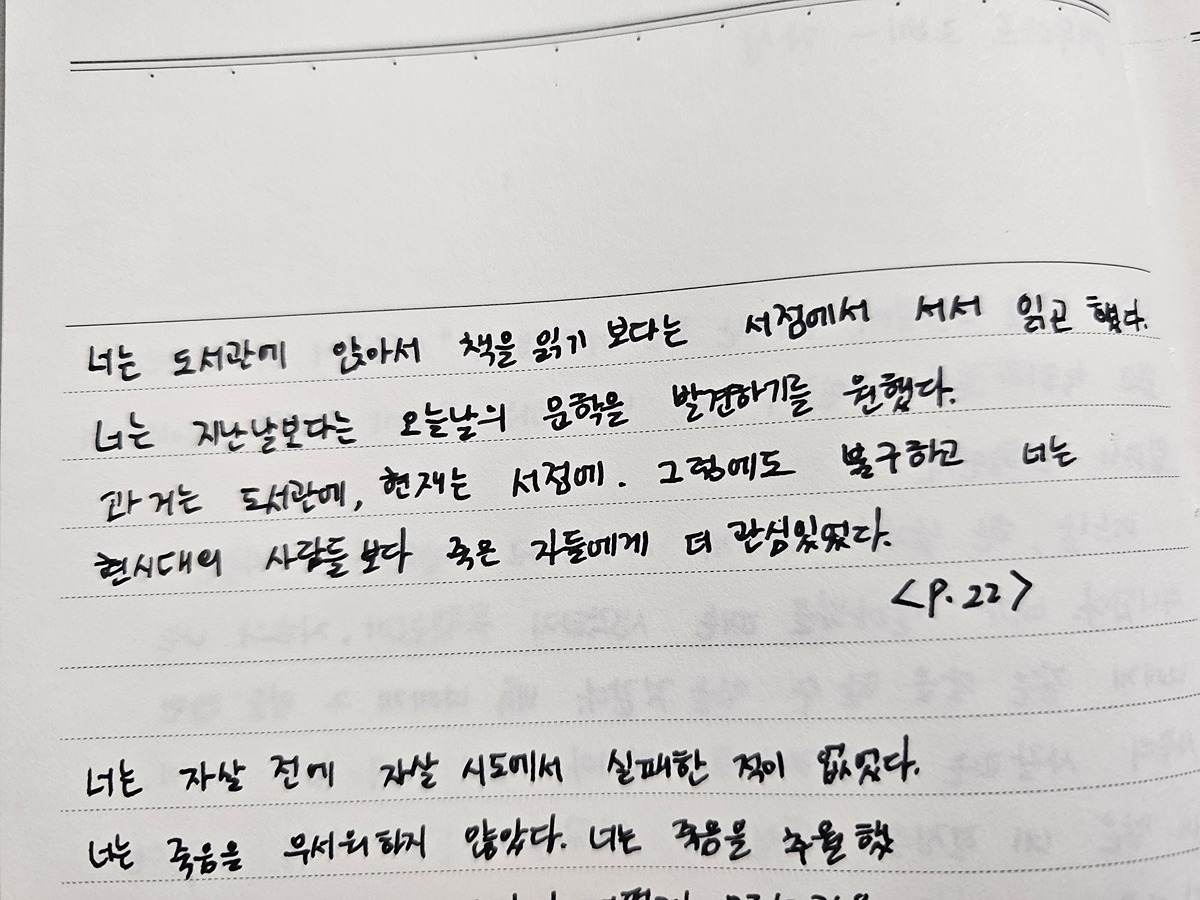 너는 도서관에 앉아서 책을 읽기 보다는 서점에서 서서 읽곤 했다.
너는 지난날보다는 오늘날의 문학을 발견하기를 원했다.
과거는 도서관에, 현재는 서점에. 그럼에도 불구하고 너는
현시대의 사람들보다 죽은 자들에게 더 관심있었다.
<P.22>
너는 자살 전에 자살 시도에서 실패한 적이 없었다.
너는 죽음을 무서워하지 않았다. 너는 죽음을 추월했